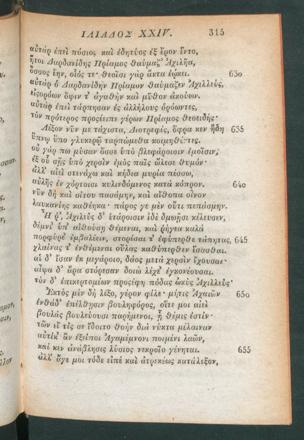 ΙΛΙΑΔΟΣ XXIV. 315
αὐτὰρ ἐπεὶ πόσιος, καὶ ἐδητύος ἐξ ἔρον ἕντο,
ἤτοι Δαρδανίδης Πρίαμος θαύμαζ' Ἀχιλῆα,
ὅσσος ἔην, οἷός τε· θεοῖσι γὰρ ἄντα ἐῴκει. 630
αὐτὰρ ὁ Δαρδανίδην Πρίαμον θαύμαζεν Ἀχιλλεὺς,
εἰσορόων ὄψιν τ' ἀγαθὴν καὶ μῦθον ἀκούων.
αὐτὰρ ἐπεὶ τάρπησαν ἐς ἀλλήλους ὁρόωντες,
τὸν πρότερος προσέειπε γέρων Πρίαμος θεοειδής·
Λέξον νῦν με τάχιστα, Διοτρεφὲς, ὄφρα κεν ἤδη 635
ὕπνῳ ὕπο γλυκερῷ ταρπώμεθα κοιμηθέντες.
οὐ γάρ πω μύσαν ὄσσε ὑπὸ βλεφάροισιν ἐμοῖσιν,
ἐξ οὗ σῇς ὑπὸ χερσὶν ἐμὸς παῖς ὤλεσε θυμόν·
ἀλλ' αἰεὶ στενάχω καὶ κήδεα μυρία πέσσω,
αὐλῆς ἐν χόρτοισι κυλινδόμενος κατὰ κόπρον. 640
νῦν δὴ καὶ σίτου πασάμην, καὶ αἴθοπα οἶνον
λαυκανίης καθέηκα· πάρος γε μὲν οὔτι πεπάσμην.
Ἦ ῥ', Ἀχιλεὺς δ' ἑτάροισιν ἰδὲ δμωῇσι κέλευσεν,
δέμνι' ὑπ' αἰθούσῃ θέμεναι, καὶ ῥήγεα καλὰ
πορφύρε' ἐμβαλέειν, στορέσαι τ' ἐφύπερθε τάπητας, 645
χλαίνας τ' ἐνθέμεναι οὔλας καθύπερθεν ἕσασθαι.
αἱ δ' ἴσαν ἐκ μεγάροιο, δάος μετὰ χερσὶν ἔχουσαι·
αἶψα δ' ἄρα στόρεσαν δοιὼ λέχε' ἐγκονέουσαι.
τὸν δ' ἐπικερτομέων προσέφη πόδας ὠκὺς Ἀχιλλεύς·
Ἐκτὸς μὲν δὴ λέξο, γέρον φίλε· μήτις Ἀχαιῶν 650
ἐνθάδ' ἐπέλθῃσιν βουληφόρος, οἵτε μοι αἰεὶ
βουλὰς βουλεύουσι παρήμενοι, ἣ θέμις ἐστίν·
τῶν εἴ τίς σε ἴδοιτο θοὴν διὰ νύκτα μέλαιναν
αὐτίκ' ἂν ἐξείποι Ἀγαμέμνονι ποιμένι λαῶν,
καί κεν ἀνάβλησις λύσιος νεκροῖο γένηται. 655
ἀλλ' ἄγε μοι τόδε εἰπὲ καὶ ἀτρεκέως κατάλεξον,